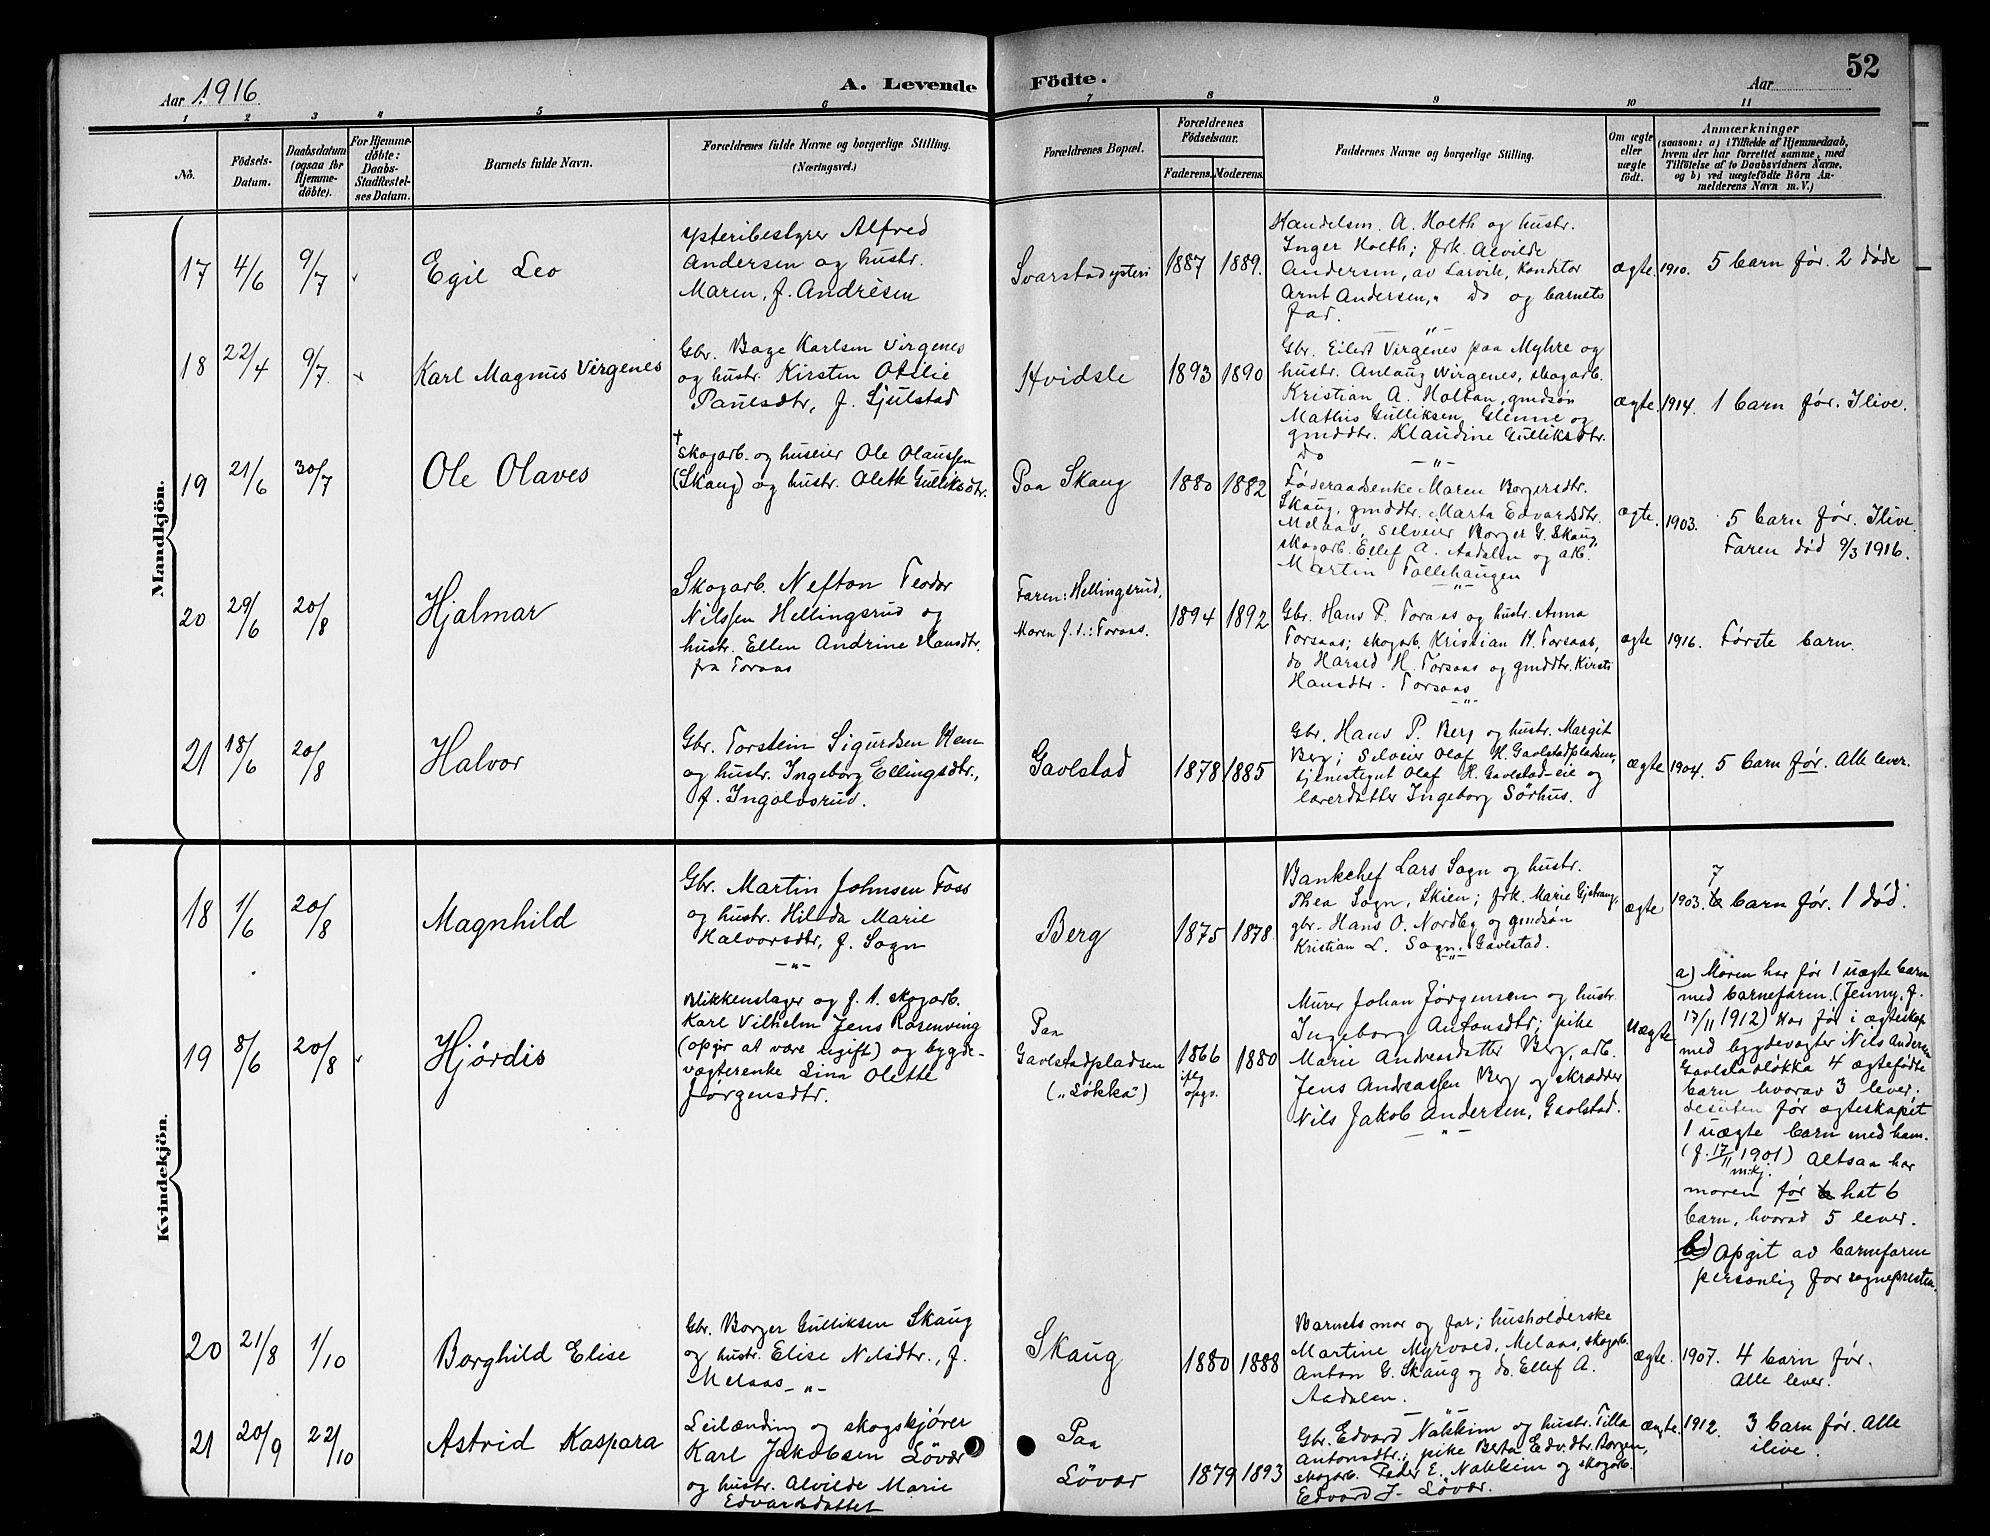 Aar 1916
A. Levende Födte.
Aar
52
1 2 3 4 5 6 7 8 9 10 11
No.
Födsels-
Datum.
Daabsdatum
(ogsaa for
Hjemme-
döbte).
For Hjemme-
döbte:
Daabs-
Stadfæstel-
ses Datum.
Barnets fulde Navn.
Forældrenes fulde Navne og borgerlige Stilling.
(Næringsvei.)
Forældrenes Bopæl.
Forældrenes
Födselsaar.
Faderens. Moderens.
Faddernes Navne og borgerlige Stilling.
Om ægte
eller
uægte
födt.
Anmærkninger
(saasom: a) i Tilfælde af Hjemmedaab,
hvem der har forrettet samme, med
Tilföielse af to Daabsvidners Navne,
og b) ved uægtefödte Börn An-
melderens Navn m. V.)
Mandkjön.
17
4/6
9/7
Egil Leo
Ysteribestyrer Alfred
Andersen og hustr.
Maren, f. Andrèsen
Svarstadysteri
1887
1889.
Handelsm. A. Holth og hustr.
Inger Holth; frk. Alvilde
Andersen, av Larvik, Konditor
Arnt Andersen, " do og barnets
far.
ægte.
1910. 5 barn før. 2 døde
18
22/4
9/7.
Karl Magnus Virgenes
Gbr. Boye Karlsen Virgenes
og hustr. Kirsten Otilie
Paulsdtr, f. Sjulstad
Hvidsle
1893
1890
Gbr. Eilert Virgenes paa Myhre og
hustr. Anlaug Virgenes, skogarb.
Kristian A. Holtan, gmdsøn
Mathis Gulliksen Glenne og
gmddtr. Klaudine Gulliksdtr.
do
ægte.
1914. 1 barn før. Ilive.
19
21/6
30/7
Ole Olaves
† Skogarb. og huseier Ole Olaussen
(Skaug) og hustr. Olette Gulliksdtr.
Paa Skaug
1880
1882
Føderaadsenke Maren Borgersdtr.
Skaug, gmddtr. Marta Edvardsdtr.
Melaas, selveier Borger G. Skaug,
skogarb. Ellef A. Aadalen og arb.
Martin Tollehaugen
ægte.
1903. 5 barn før. Ilive.
Faren død 9/3 1916.
20
29/6
20/8
Hjalmar
Skogarb. Nefton Teodor
Nilssen Hellingsrud og
hustr. Ellen Andrine Hansdtr.
fra Toraas
Faren: Hellingsrud,
Moren f. t.: Toraas.
1894
1892
Gbr. Hans P. Toraas og hustr. Anna
Torsaas; skogarb. Kristian H. Torsaas,
do Harald H. Torsaas og gmddtr. Kirsti
Hansdtr. Torsaas
ægte
1916. Første barn.
21
18/6
20/8
Halvor
Gbr. Torstein Sigurdsen Hem
og hustr. Ingeborg Ellingsdtr.,
f. Ingolvsrud.
Gavlstad
1878
1885
Gbr. Hans P. Berg og hustr. Margit
Berg; Selveier Olaf H. Gavlstadpladsen,
tjenestegut Olaf K. Gavlstad-eie og
lærerdatter Ingeborg Sørhus.
ægte
1904. 5 barn før. Alle lever.
Kvindekjön.
18
1/6
20/8
Magnhild
Gbr. Martin Johnsen Foss
og hustr. Hilda Marie
Halvorsdtr, f. Sogn
Berg
1875
1878
Bankchef Lars Sogn og hustr.
Thea Sogn, Skien; frk. Marie Gjetrang,
gbr. Hans O. Nordby og gmdsøn
Kristian L. Sogn, Gavlstad.
ægte
1903. 7 barn før. 1 død.
19
8/6
20/8
Hjørdis
Blikkenslager og f. t. skogarb.
Karl Vilhelm Jens Rosenving
(opgir at være ugift) og bygde-
vagterenke Lina Olette
Jørgensdtr.
Paa
Gavlstadpladsen
("Løkka")
1866
iflg
opgv.
1880
Murer Johan Jørgensen og hustr.
Ingeborg Antonsdtr; pike
Marie Andreasdatter Berg, arb.
Jens Andreassen Berg og skrædder
Nils Jakob Andersen, Gavlstad.
Uægte
a) Moren har før 1 uægte barn
med barnefaren. (Jenny, f.
17/11 1912) Har før i ægteskap
med bygdevagter Nils Andersen
Gavlstadløkka 4 ægtefødte
barn hvorav 3 lever;
desuten før ægteskapet
1 uægte barn med ham.
(f. 17/11 1901) Altsaa har
m.kj.
moren før hat 6
barn, hvorav 5 lever.
b) Opgit av barnefaren
personlig for sogneprestn.
20
21/8
1/10
Borghild Elise
Gbr. Borger Gulliksen Skaug
og hustr. Elise Nilsdtr., f.
Melaas
Skaug
1880
1888
Barnets mor og far; husholderske
Martine Myrvold, Melaas, skogarb.
Anton G. Skaug og do Ellef A.
Aadalen.
ægte.
1907. 4 barn før.
Alle lever.
21
20/9
22/10
Astrid Kaspara
Leilænding og skogskjører
Karl Jakobsen Løvær
og hustr. Alvilde Marie
Edvardsdatter
Paa
Løvær
1879
1893
Gbr. Edvard Nakkim og hustr. Tilla
Antonsdtr.; pike Berta Edv.dtr. Borgen,
skogarb. Peder E. Nakkim og skogarb.
Edvard J. Løvær.
ægte.
1912. 3 barn før. Alle
ilive.